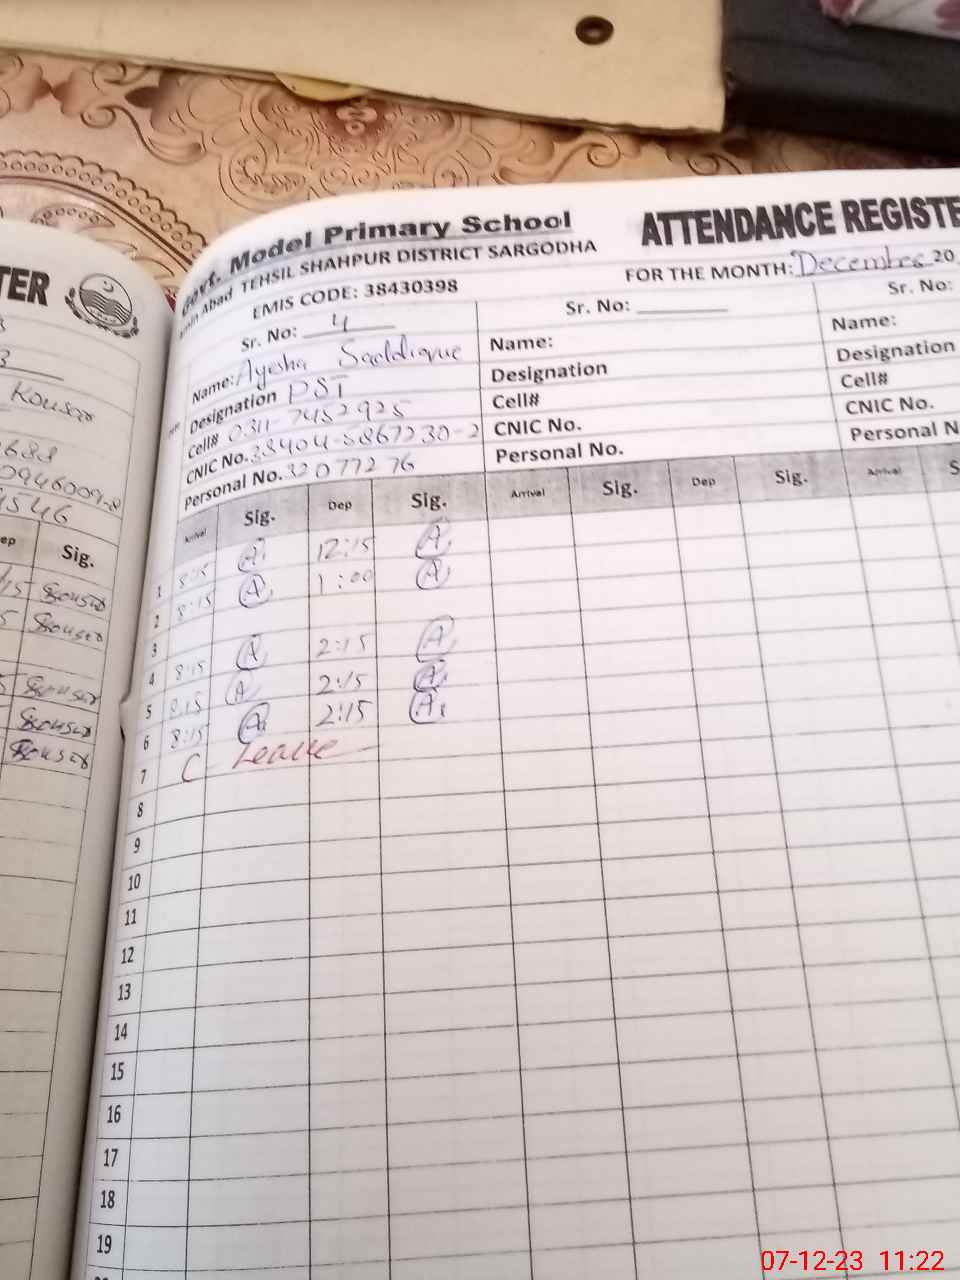 TER
Kousar
4546
Sig.
Kousar
Kousar
Kousar
Kousar
Kousar
Govt. Model Primary School
ATTENDANCE REGISTE
Abad TEHSIL SHAHPUR DISTRICT SARGODHA
EMIS CODE: 38430398
FOR THE MONTH: December 20
Sr. No: 4
Sr. No:
Sr. No:
Name: Ayesha Saddique
Name:
Name:
Designation PST
Designation
Designation
Cell# 0311-7452925
Cell#
Cell#
CNIC No. 38404-5867230-2
CNIC No.
CNIC No.
Personal No. 32077276
Personal No.
Personal N
Arrival Sig. Dep Sig. Arrival Sig. Dep Sig. Arrival S
1 8:15 A 12:15 A
2 8:15 A 1:00 A
3
4 8:15 A 2:15 A
5 8:15 A 2:15 A
6 8:15 A 2:15 A
7 C - Leave -
8
9
10
11
12
13
14
15
16
17
18
19
07-12-23 11:22